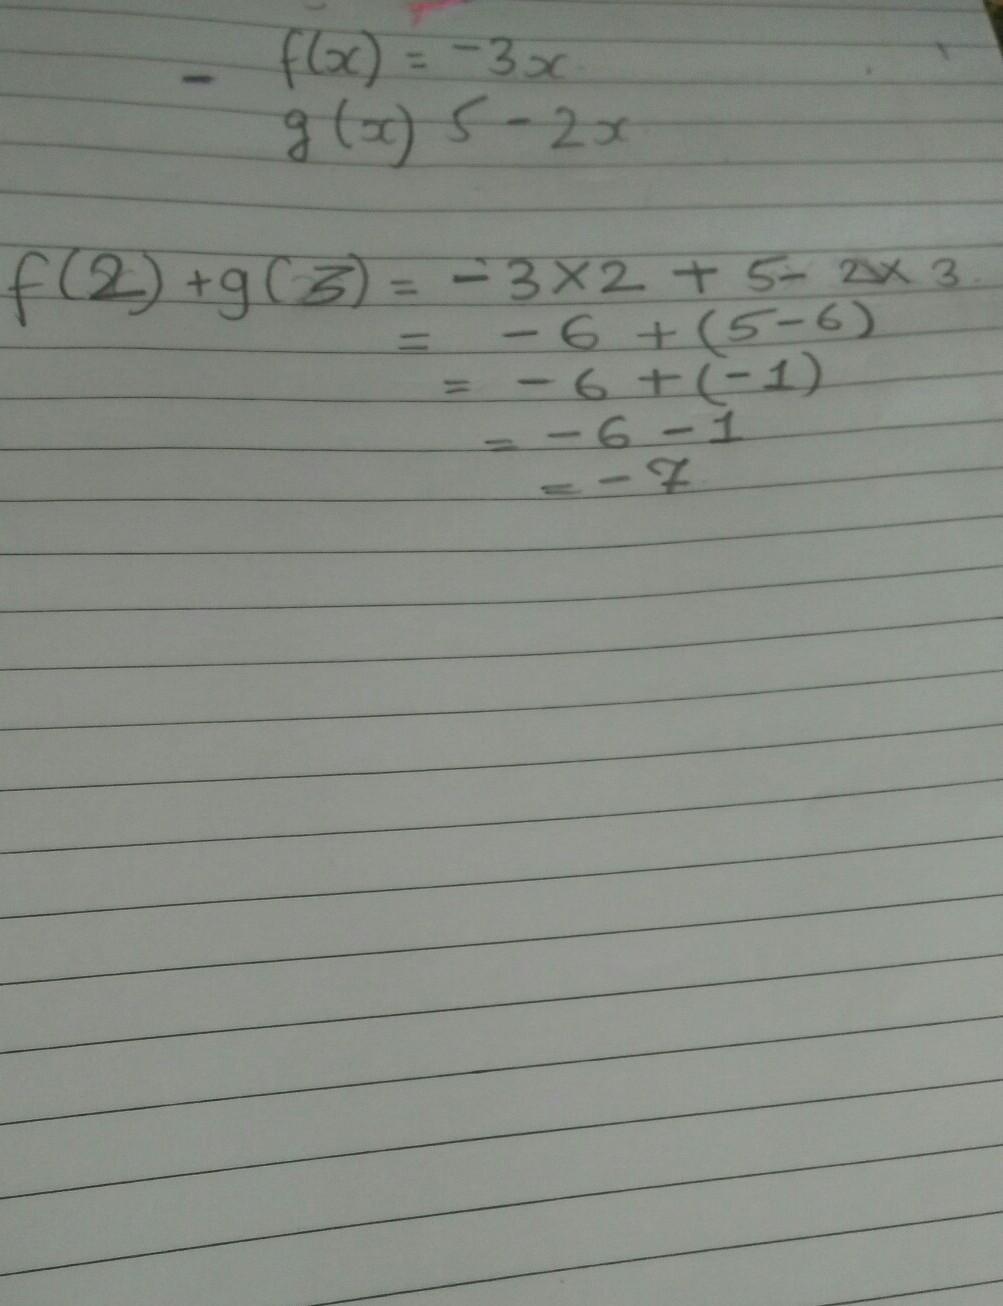 - f(x) = -3x
g(x) 5 - 2x
f(2) + g(3) = -3×2 + 5 - 2×3
= -6 + (5-6)
= -6 + (-1)
= -6 - 1
= -7